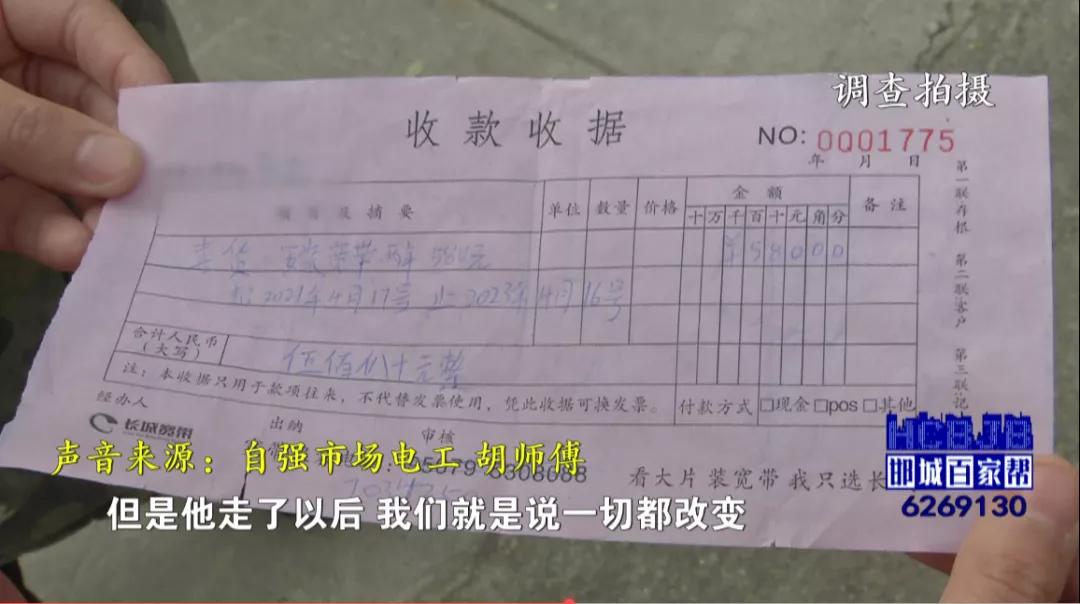 调查拍摄
收款收据
NO: 0001775
年 月 日
摘要 单位 数量 价格 金额 备注
十 万 千 百 十 元 角 分
宽带 580元 ¥58000
2021年4月17号 止 2023年4月16号
合计人民币
(大写) 伍佰八十元整
注:本收据只用于款项往来,不代替发票使用,凭此收据可换发票。
付款方式 □现金 □pos □其他
第一联存根 第二联客户 第三联记
经办人 出纳 审核
长城宽带
8308088
看大片 装宽带 我只选长
声音来源:自强市场电工 胡师傅
但是他走了以后 我们就是说一切都改变
HCBJB
邯城百家帮
6269130